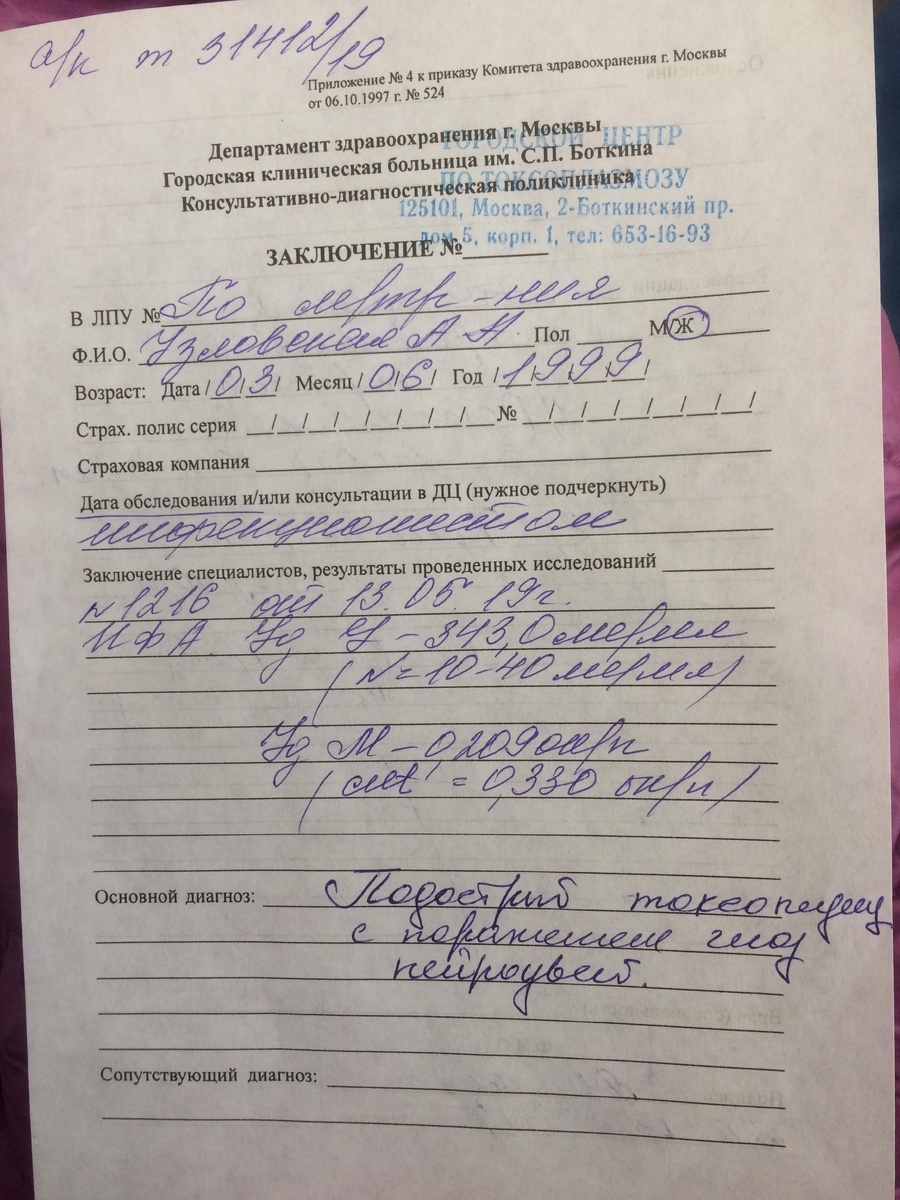 а/к т 31412/19
Приложение № 4 к приказу Комитета здравоохранения г. Москвы
от 06.10.1997 г. № 524
Департамент здравоохранения г. Москвы
Городская клиническая больница им. С.П. Боткина
Консультативно-диагностическая поликлиника
ГОРОДСКОЙ ЦЕНТР
ПО ТОКСОПЛАЗМОЗУ
125101, Москва, 2-Боткинский пр.
дом 5, корп. 1, тел: 653-16-93
ЗАКЛЮЧЕНИЕ №
В ЛПУ № По
Ф.И.О. Узловская А А. Пол М/Ж
Возраст: Дата /0/3/ Месяц /0/6/ Год /1/9/9/9/
Страх. полис серия __/__/__/__/__/__/__/__ № __/__/__/__/__/__/__/
Страховая компания
Дата обследования и/или консультации в ДЦ (нужное подчеркнуть)
инфекционистом
Заключение специалистов, результаты проведенных исследований
№1216 от 13.05.19г.
ИФА Ig G – 343,0 ме/мл
(N = 10-40 ме/мл)
Ig M – 0,209
= 0,330
Основной диагноз: Подострый
с поражением глаз
нейроувеит.
Сопутствующий диагноз: